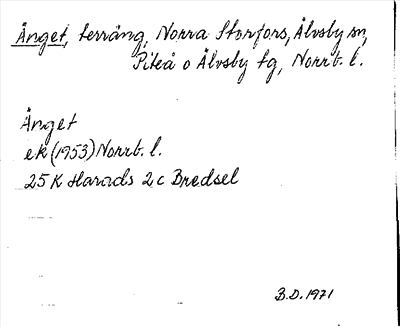 Änget, terräng, Norra Storfors, Älvsby sn,
Piteå o Älvsby tg, Norrb. l.
Änget
ek (1953) Norrb. l.
25 K Harads 2 c Bredsel
B.D. 1971